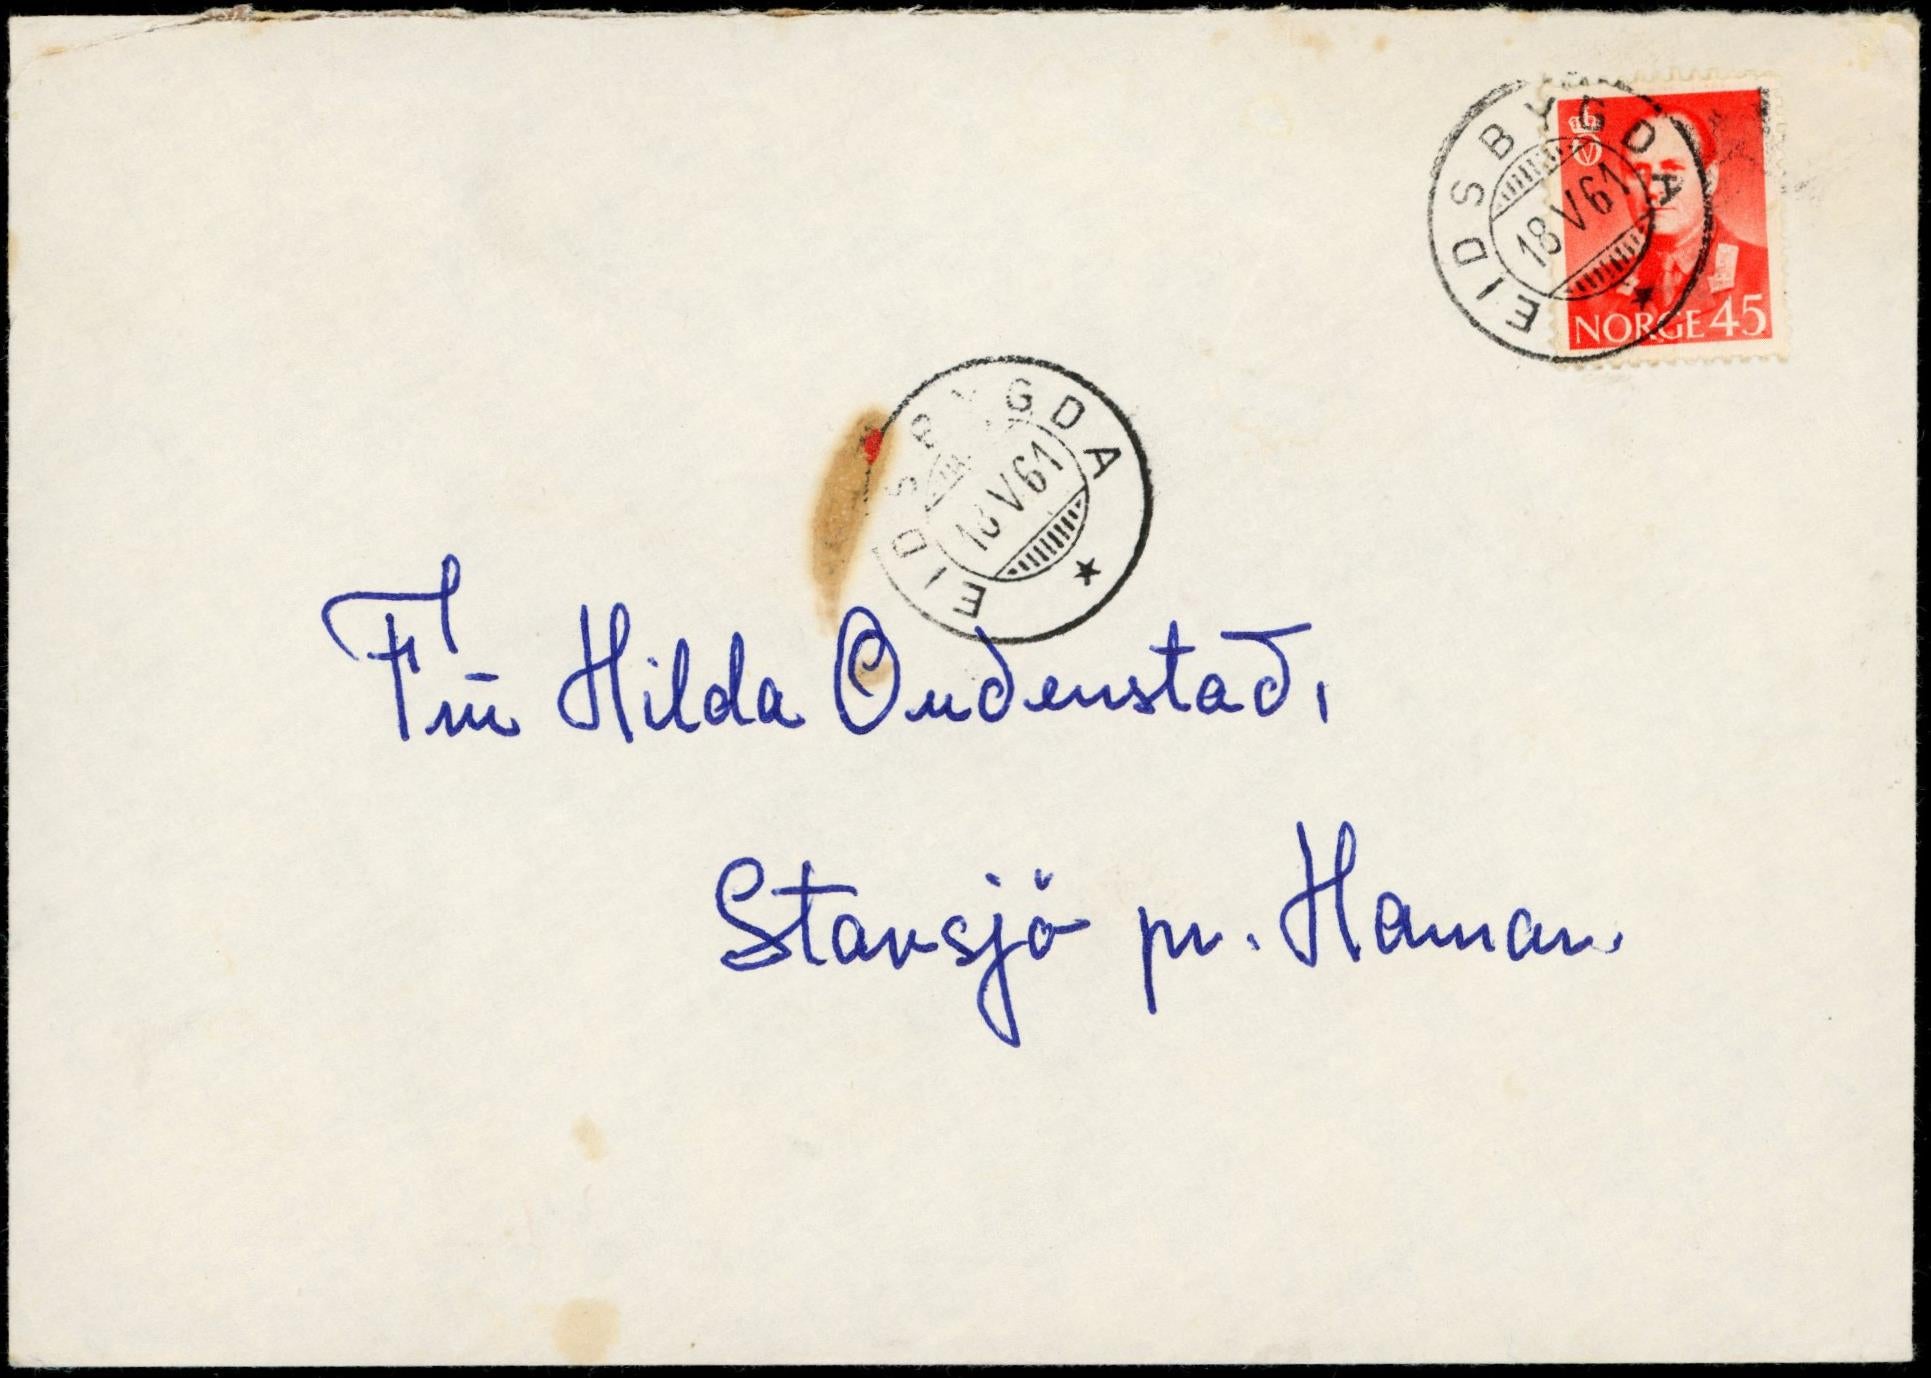 EIDSBYGDA
18 V 61
NORGE 45
EIDSBYGDA
18 V 61
Fru Hilda Oudenstad,
Stavsjö pr. Hamar.